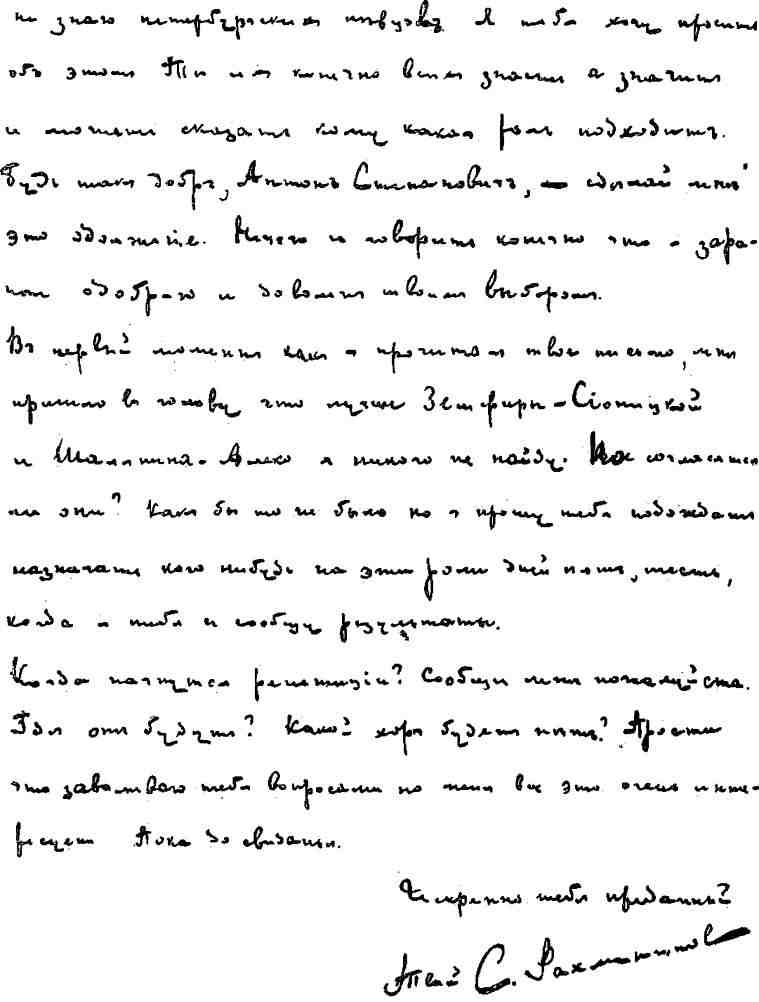 не знаю петербургских певцов. Я тебя хочу просить
объ этомъ Ты их конечно всехъ знаешь а значитъ
и можешь сказать кому какая роль подходитъ.
Будь такъ добръ, Антонъ Степановичъ, – сделай мне
это одолженiе. Нечего и говорить конечно что я зара-
нее одобряю и доволенъ твоимъ выборомъ.
Въ первый моментъ какъ я прочиталъ твое письмо, мне
пришло въ голову что лучше Земфиры – Сiоницкой
и Шаляпина – Алеко я никого не найду. Но согласятся
ли они? Какъ бы то не было но я прошу тебя подождать
назначать кого нибудь на эти роли дней пять, шесть,
когда я тебе и сообщу результаты.
Когда начнутся репетицiи? Сообщи мне пожалуйста.
Где они будутъ? Какой хоръ будетъ петь? Прости
что заваливаю тебя вопросами но меня все это очень инте-
ресуетъ Пока до свиданья.
Искренно тебе преданный
Твой С. Рахманиновъ